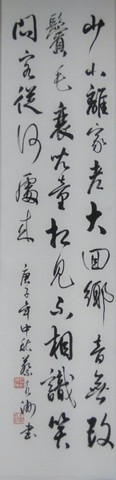 少小離家老大回鄉音無改
鬢毛衰兒童相見不相識笑
問客從何處來
庚子年中秋蔡書